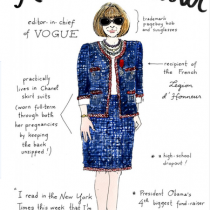 editor-in-chief
of VOGUE
trademark
pageboy bob
and sunglasses
recipient of
the French
Légion
d'Honneur
practically
lives in Chanel
skirt suits
(worn full-term
through both
her pregnancies
by keeping
the back
unzipped!)
* a high-school
dropout!
"I read in the New York
Times this week that I'm
* President Obama's
4th biggest fund-raiser